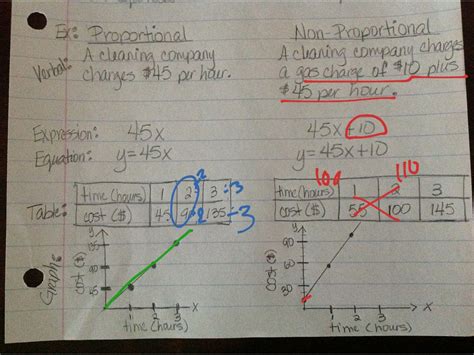 Ex: Proportional
Non-Proportional
Verbal:
A cleaning company
charges $45 per hour.
A cleaning company charges
a gas charge of $10 plus
$45 per hour.
Expression: 45x
45x+10
Equation: y=45x
y=45x+10
Table:
time (hours) 1 2 3
cost ($) 45 90 135
÷2
÷3
÷2
÷3
100 110
time (hours) 1 2 3
cost ($) 55 100 145
Graph:
y
cost ($)
135
90
45
1 2 3
x
time (hours)
y
cost ($)
90
60
30
1 2 3
x
time (hours)